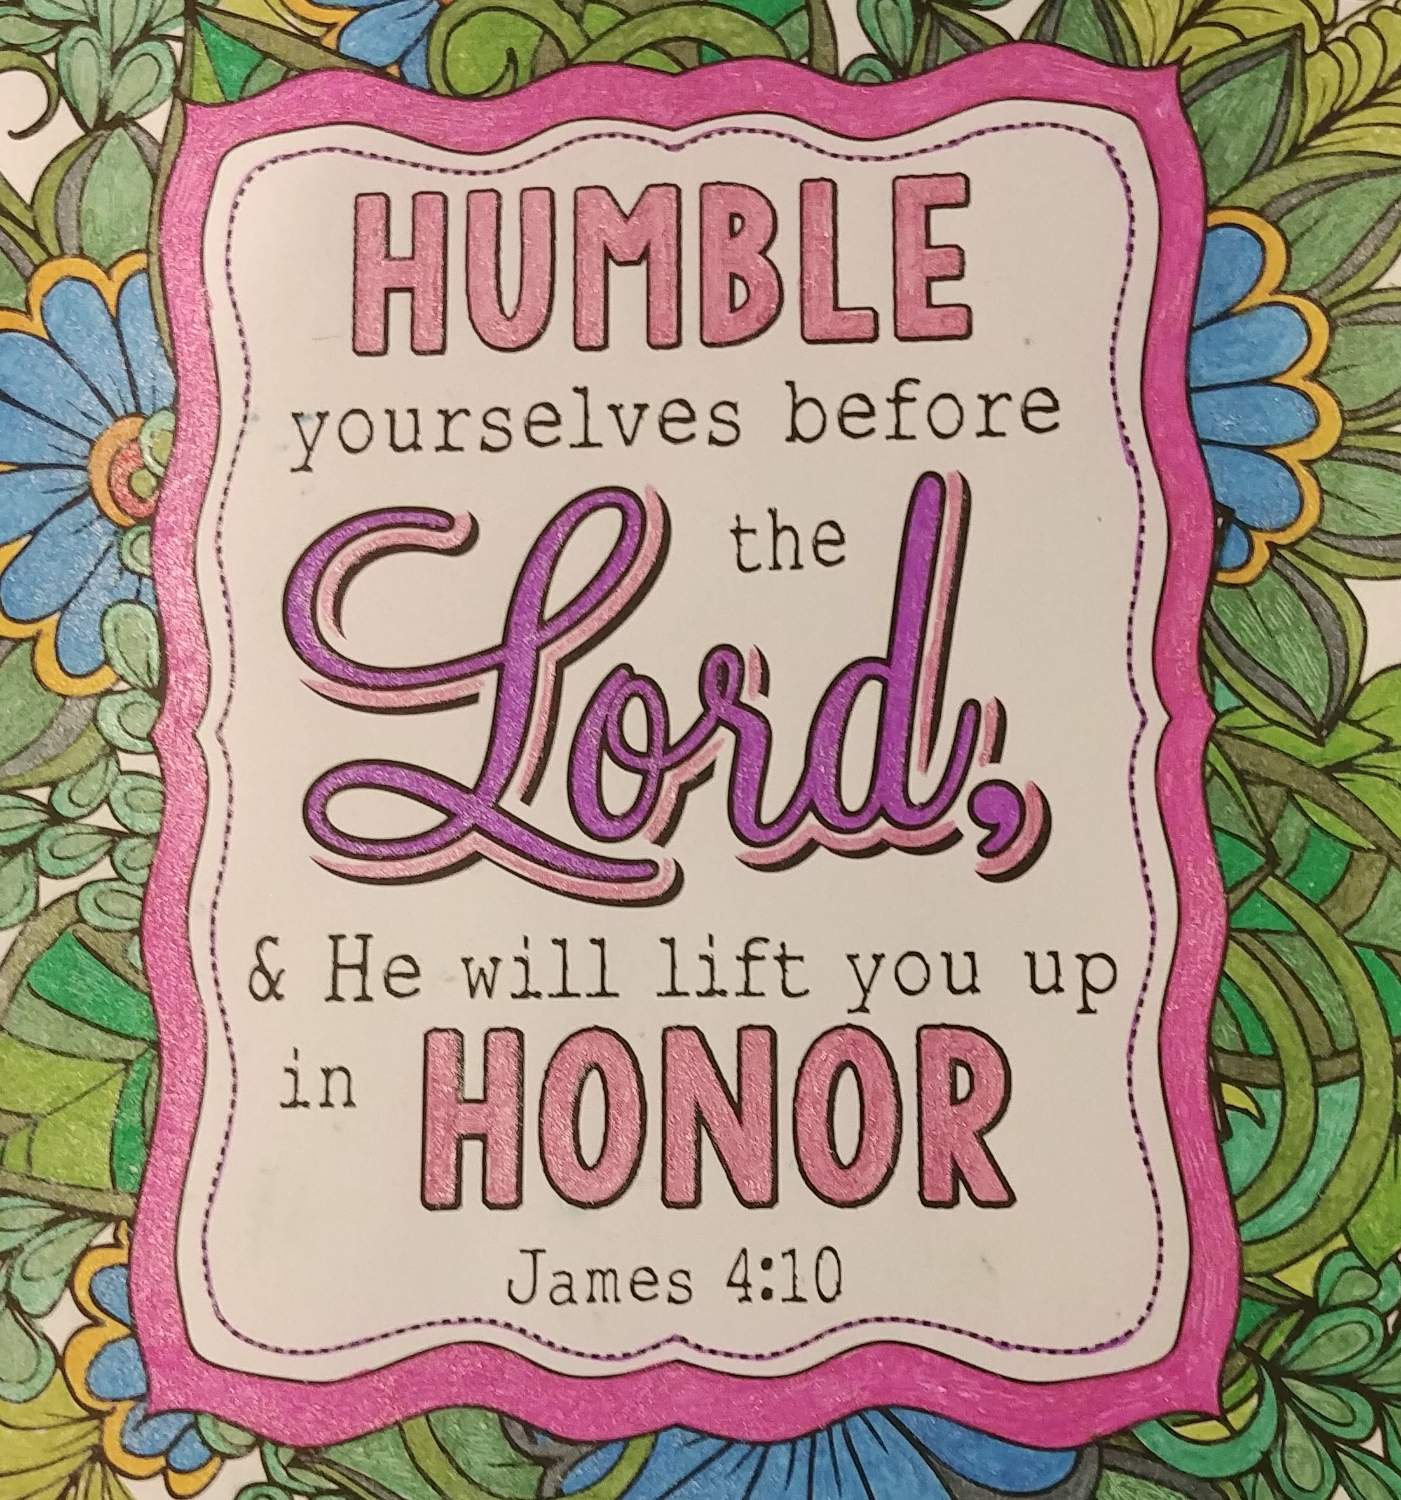 HUMBLE
yourselves before
the
Lord,
& He will lift you up
in HONOR
James 4:10